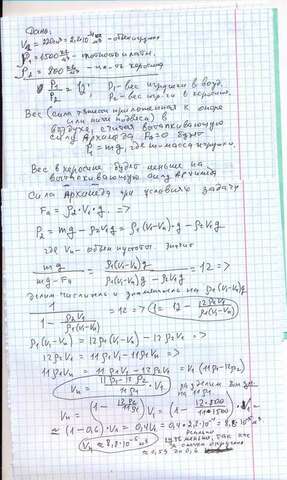 Дано:
V₁ = 220 см³ = 2,2·10⁻⁴ м³ - объем игрушки
ρ₁ = 1500 кг/м³ - плотность
ρ₂ = 800 кг/м³ - пл-ть керосина
P₁/P₂ = 12; P₁ - вес игрушки в возд.
P₂ - вес игр-ки в керосине.
Вес (сила тяжести приложенная к опоре
или нити подвеса) в
воздухе, считая выталкивающую
силу Архимеда Fa=0 будет
P₁ = mg, где m-масса игрушки.
Вес в керосине будет меньше на
выталкивающую силу Архимеда
Сила Архимеда при условиях задачи
Fa = ρ₂·V₁·g =>
P₂ = mg - ρ₂V₁g = ρ₁(V₁-Vн)·g - ρ₂V₁g
где Vн - объем пустоты. Значит
mg / (mg - FA) = ρ₁(V₁-Vн)g / (ρ₁(V₁-Vн)g - ρ₂V₁g) = 12 =>
Делим числитель и знаменатель на ρ₁(V₁-Vн)g
1 / (1 - ρ₂V₁ / ρ₁(V₁-Vн)) = 12 => 1 = 12 - 12ρ₂V₁ / ρ₁(V₁-Vн)
ρ₁(V₁-Vн) = 12ρ₁(V₁-Vн) - 12ρ₂V₁ =>
12ρ₂V₁ = 11ρ₁V₁ - 11ρ₁Vн =>
11ρ₁Vн = 11ρ₁V₁ - 12ρ₂V₁ = V₁(11ρ₁-12ρ₂)
Vн = (11ρ₁ - 12ρ₂) / 11ρ₁ · V₁
Vн = (1 - 12ρ₂/11ρ₁) V₁ = (1 - 12·800 / 11·1500) · V₁ =
≈ (1 - 0,6)·V₁ = 0,4V₁ = 0,4·2,2·10⁻⁴ = 8,8·10⁻⁵ м³
Vн ≈ 8,8·10⁻⁵ м³